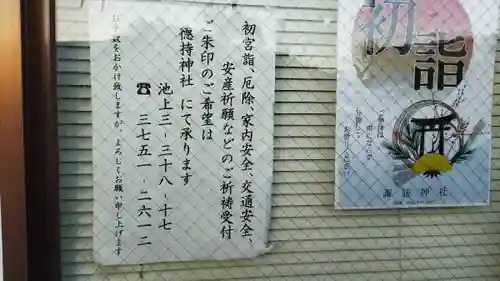 初宮詣、厄除、家内安全、交通安全、
安産祈願などのご祈祷受付
ご朱印のご希望は
徳持神社 にて承ります
池上三-三十八-十七
☎ 三七五一-二六一二
お手数をおかけ致しますが、よろしくお願い申し上げます
初詣
ご参拝は
密にならず
分散して
お参りください
諏訪神社